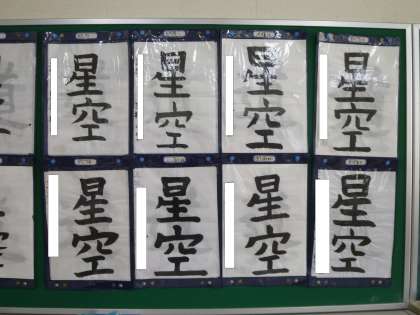 星空
星空
星空
星空
星空
星空
星空
星空